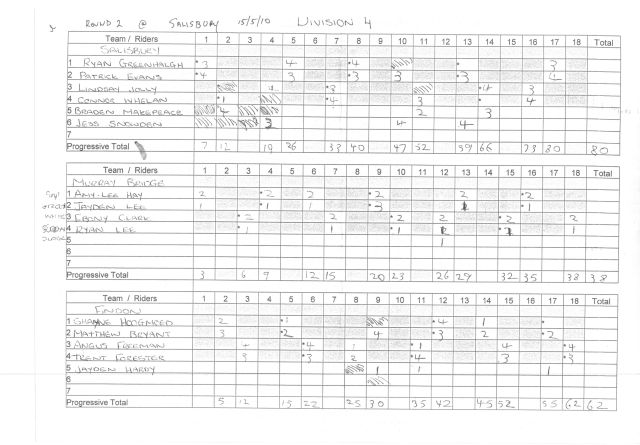 ROUND 2 @ SALISBURY 15/5/10 DIVISION 4
Team / Riders 1 2 3 4 5 6 7 8 9 10 11 12 13 14 15 16 17 18 Total
SALISBURY
1 RYAN GREENHALGH 3 4 4 3
2 PATRICK EVANS 4 3 3 3 3
3 LINDSAY JOLLY 4 3 4 3
4 CONNOR WHELAN 1 4 3 4
5 BRADEN MAKEPEACE 4 2 3
6 JESS SNOWDEN 3 4 4
7
Progressive Total 7 12 19 26 33 40 47 52 59 66 73 80 80
Team / Riders 1 2 3 4 5 6 7 8 9 10 11 12 13 14 15 16 17 18 Total
MURRAY BRIDGE
1 AMY-LEE HAY 2 2 2 2 2 2
2 JAYDEN LEE 1 1 1 3 1 1
3 EBONY CLARK 2 2 2 2 2 2
4 RYAN LEE 1 1 1 1
5 1
6
7
Progressive Total 3 6 9 12 15 20 23 26 29 32 35 38 38
Team / Riders 1 2 3 4 5 6 7 8 9 10 11 12 13 14 15 16 17 18 Total
FINDON
1 2 4 1
2 MATTHEW BRYANT 3 2 4 3 2 2
3 ANGUS FREEMAN 4 1 4 4
4 TRENT FORESTER 3 3 2 4 3 3
5 JAYDEN HARDY 1 1 1
6
7
Progressive Total 5 12 15 22 25 30 35 42 45 52 55 62 62